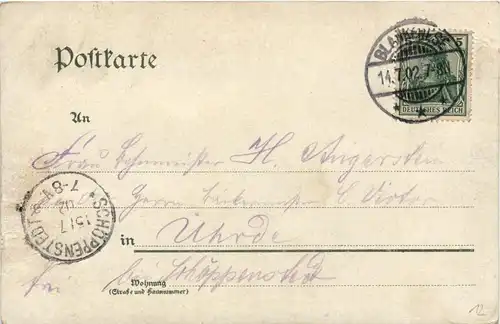 Postkarte
BLANKENESE
14.7.02. 7-8N
5
DEUTSCHES REICH
An
Frau H. Angerstein
Herrn
SCHÖPPENSTEDT
15/7
02
7-8V
in Uhrde
bei Schöppenstedt
Wohnung
(Straße und Hausnummer)
12